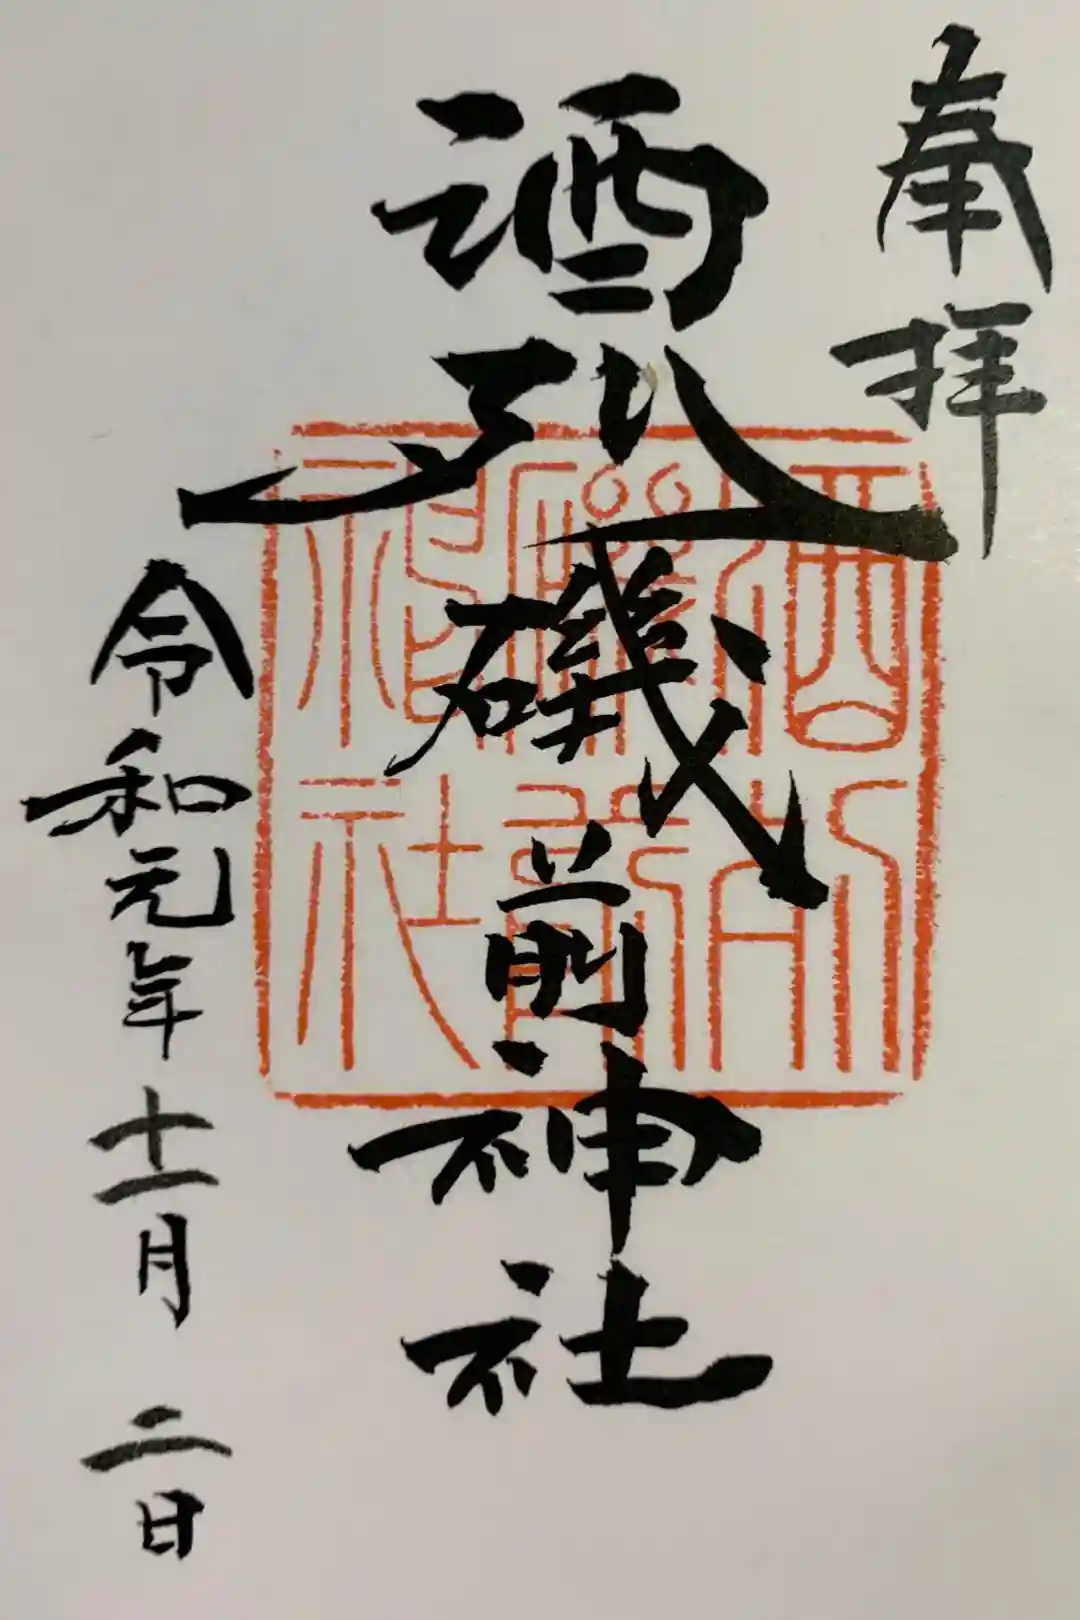 奉拝
酒列磯前神社
令和元年十一月二日
酒列
磯前
神社